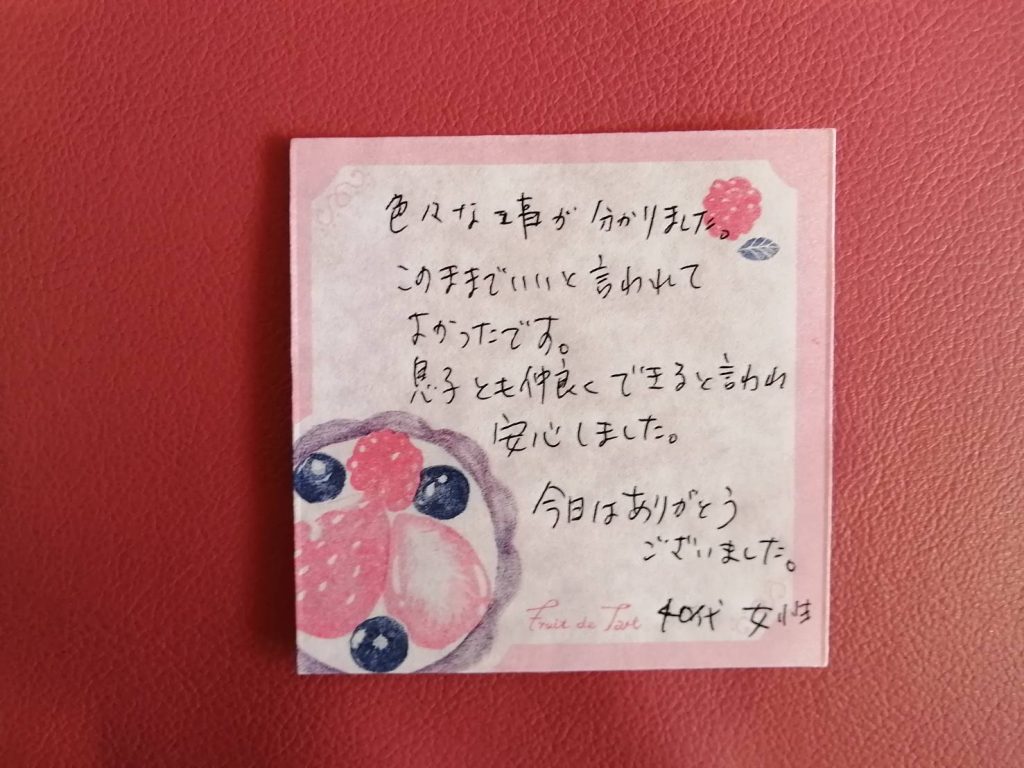 色々な事が分かりました。
このままでいいと言われて
よかったです。
息子とも仲良くできると言われ
安心しました。
今日はありがとう
ございました。
Fruit de Tart 40代 女性